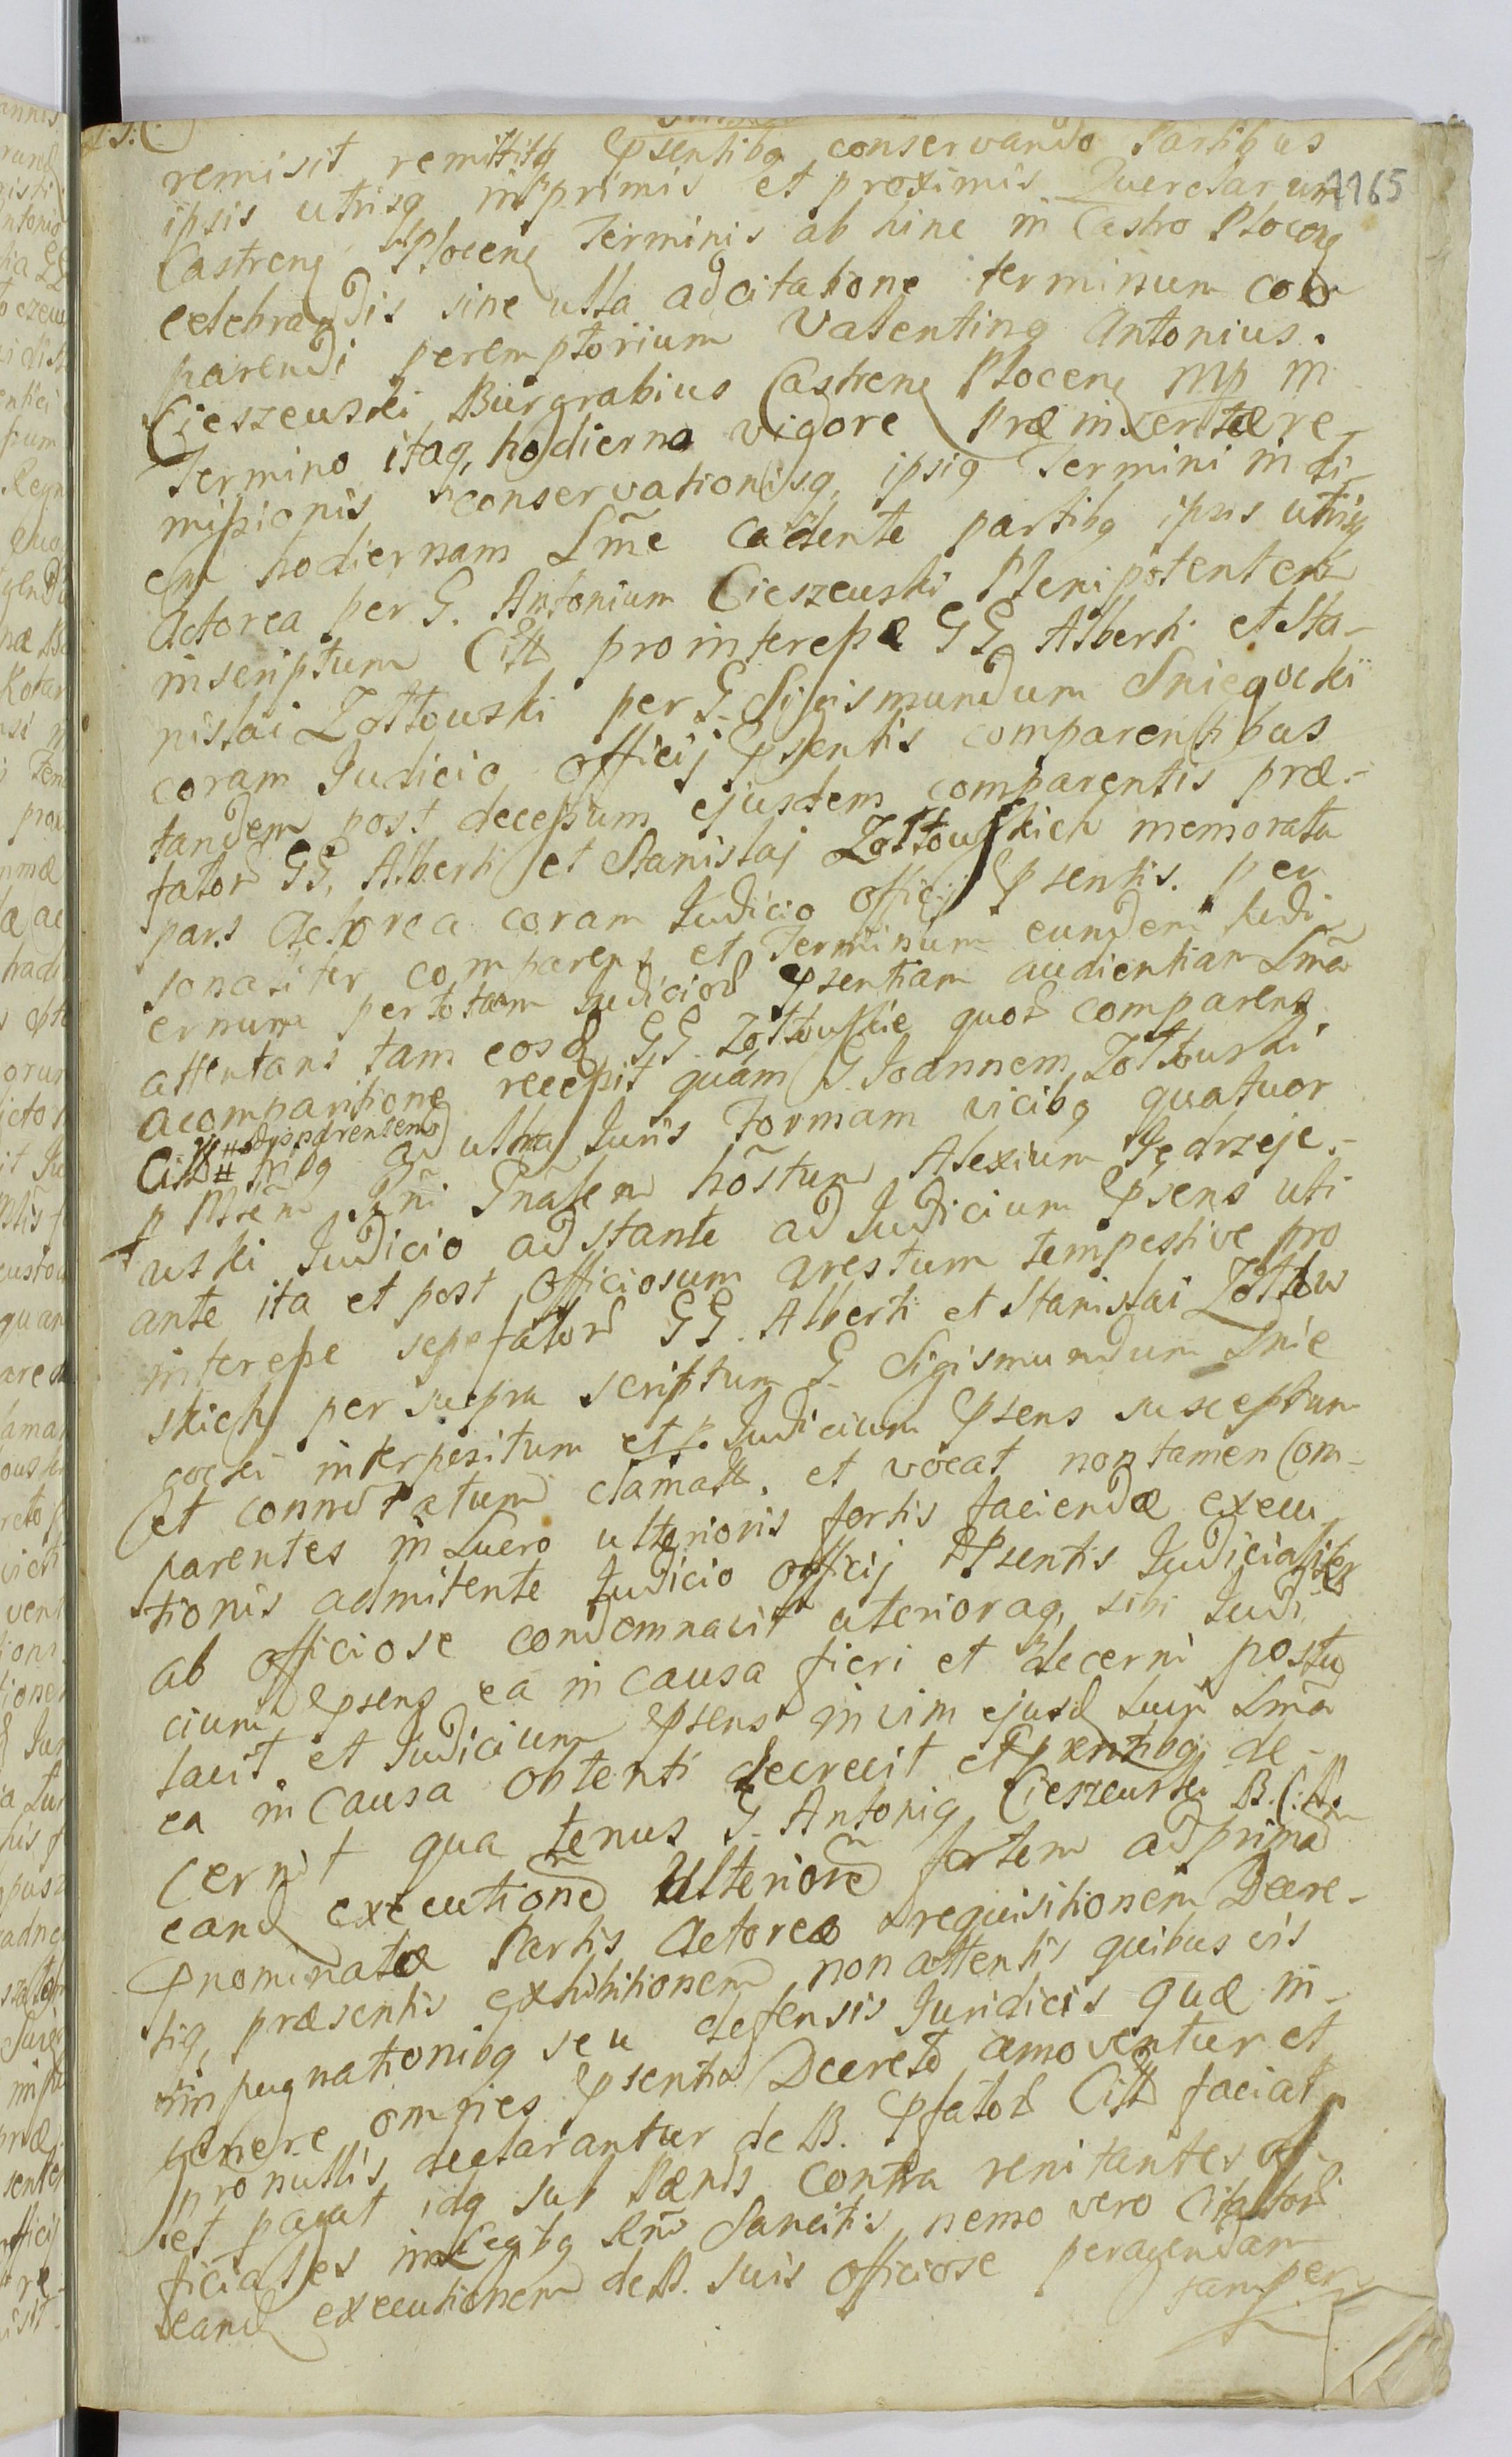 1165
remisit remittitq psentibq conservando Partibus
ipsis utrisq in primis et proximis Querelarum
Castreng Ploceng Terminis ab hinc in Castro Ploceng
celebrandis sine ulla adcitatione terminum com
parendi peremptorium Valentinq Antonius.
Cieszewski Burgrabius Castreng Ploceng mp in
Termino itaq, hodierno vigore præinsertæ re-
missionis conservationisq, ipsiq Termini in di-
em hodiernam Lm̃e cadente partibq ipsis utrisq
Actorea per G. Antonium Cieszewski Plenipotentem
inscriptum Citt pro interesse GG Alberti et Sta-
nislai Zołtowski per G. Sigismundum Sniegocki
coram Judicio officij psentis comparentibus
tandem post decessum ejusdem comparentis præ-
fator GG. Alberti et Stanislaj Zołtowskich memorata
pars Actorea coram Judicio officij psentis. per
sonaliter comparens et Terminum eundem hodi
ernum per totam Judicior psentiam audientiam Lm̃a
attentans tam eosd GG. Zołtowskie quod comparens
a comparitione recessit quám G. Joannem Zołtowski
Citt # tribq ad ultra Juris Formam vicibq quatuor
# non comparentem
p Mrẽm Rñi Gñalem hõstum Alexium Jędrzeje-
wski Judicio adstante ad Judicium psens uti
ante ita et post officiosum arestum tempestive pro
interesse sepefator GG. Alberti et Stanislai Zołtow
skich per supra scriptum G. Sigismundum Snie
gocki interpositum et p. Judicium psens susceptum
et connotatum clamatt. et vocat non tamen Com-
parentes in Lucro ulterioris fortis faciendæ execu
tionis admitente Judicio officij Psentis Judicialiter
ab officiose condemnavit ulterioraq, sibi Judi
cium psens ea in causa fieri et decerni postu
lavit et Judicium psens in vim ejusd Lucri Lm̃a
ea in causa obtenti decrevit et psentibq de-
cernit qua tenus G. Antoniq Cieszewski B. C. P.
eand executionem Ulteriorem fortem ad primam
pnominatæ Partis Actoreæ requisitionem Decre-
tiq, præsentis exhibitionem non attentis quibus vis
impugnationibq seu defensis Juridicis quæ in-
genere omnes psenti Decreto amoventur et
pro nullis declarantur de B. pfator Citt faciat
et pagat idq sub Pænis contra renitantes of-
ficiales in Legibq Rñi Sancitis, nemo vero Citator
eand executionem de B. suis officiose peragendam
jam per